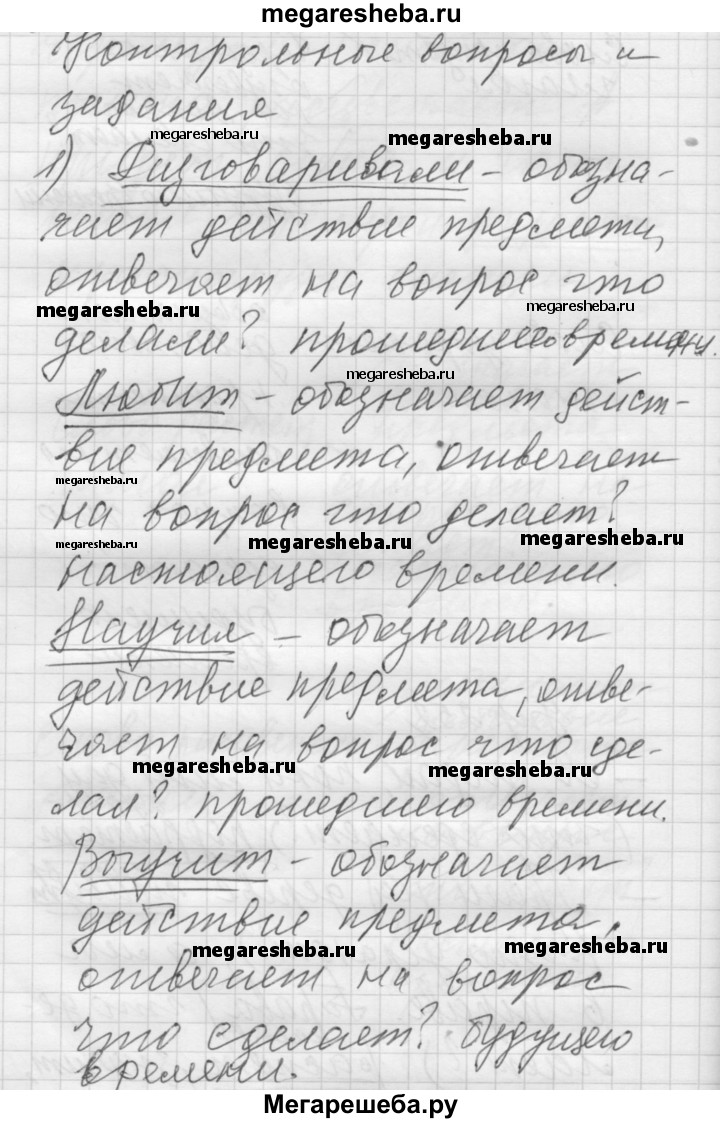 megaresheba.ru
Контрольные вопросы и
задания
megaresheba.ru
megaresheba.ru
1) Разговаривали - обозна-
чает действие предмета,
отвечает на вопрос что
megaresheba.ru
megaresheba.ru
делали? прошедшего времени.
megaresheba.ru
Любит - обозначает дейст-
вие предмета, отвечает
megaresheba.ru
на вопрос что делает?
megaresheba.ru
megaresheba.ru
megaresheba.ru
настоящего времени.
Научил - обозначает
действие предмета, отве-
чает на вопрос что сде-
megaresheba.ru
megaresheba.ru
лал? прошедшего времени.
Выучит - обозначает
действие предмета,
megaresheba.ru
megaresheba.ru
отвечает на вопрос
что сделает? будущего
времени.
Мегарешеба.ру